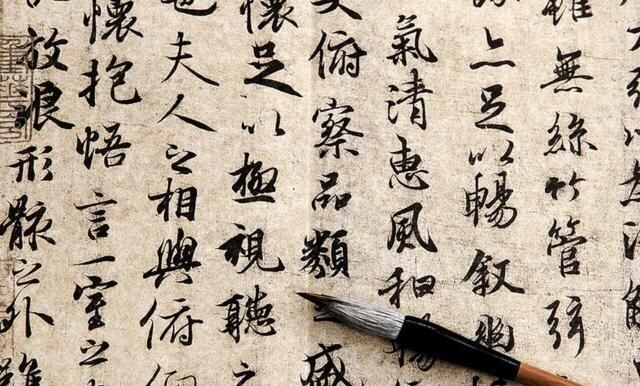 雖無絲竹管弦
亦足以暢敘幽
氣清惠風和暢
俯察品類之盛
懷足以極視聽之
也夫人之相與俯仰
懷抱悟言一室之
放浪形骸之外雖